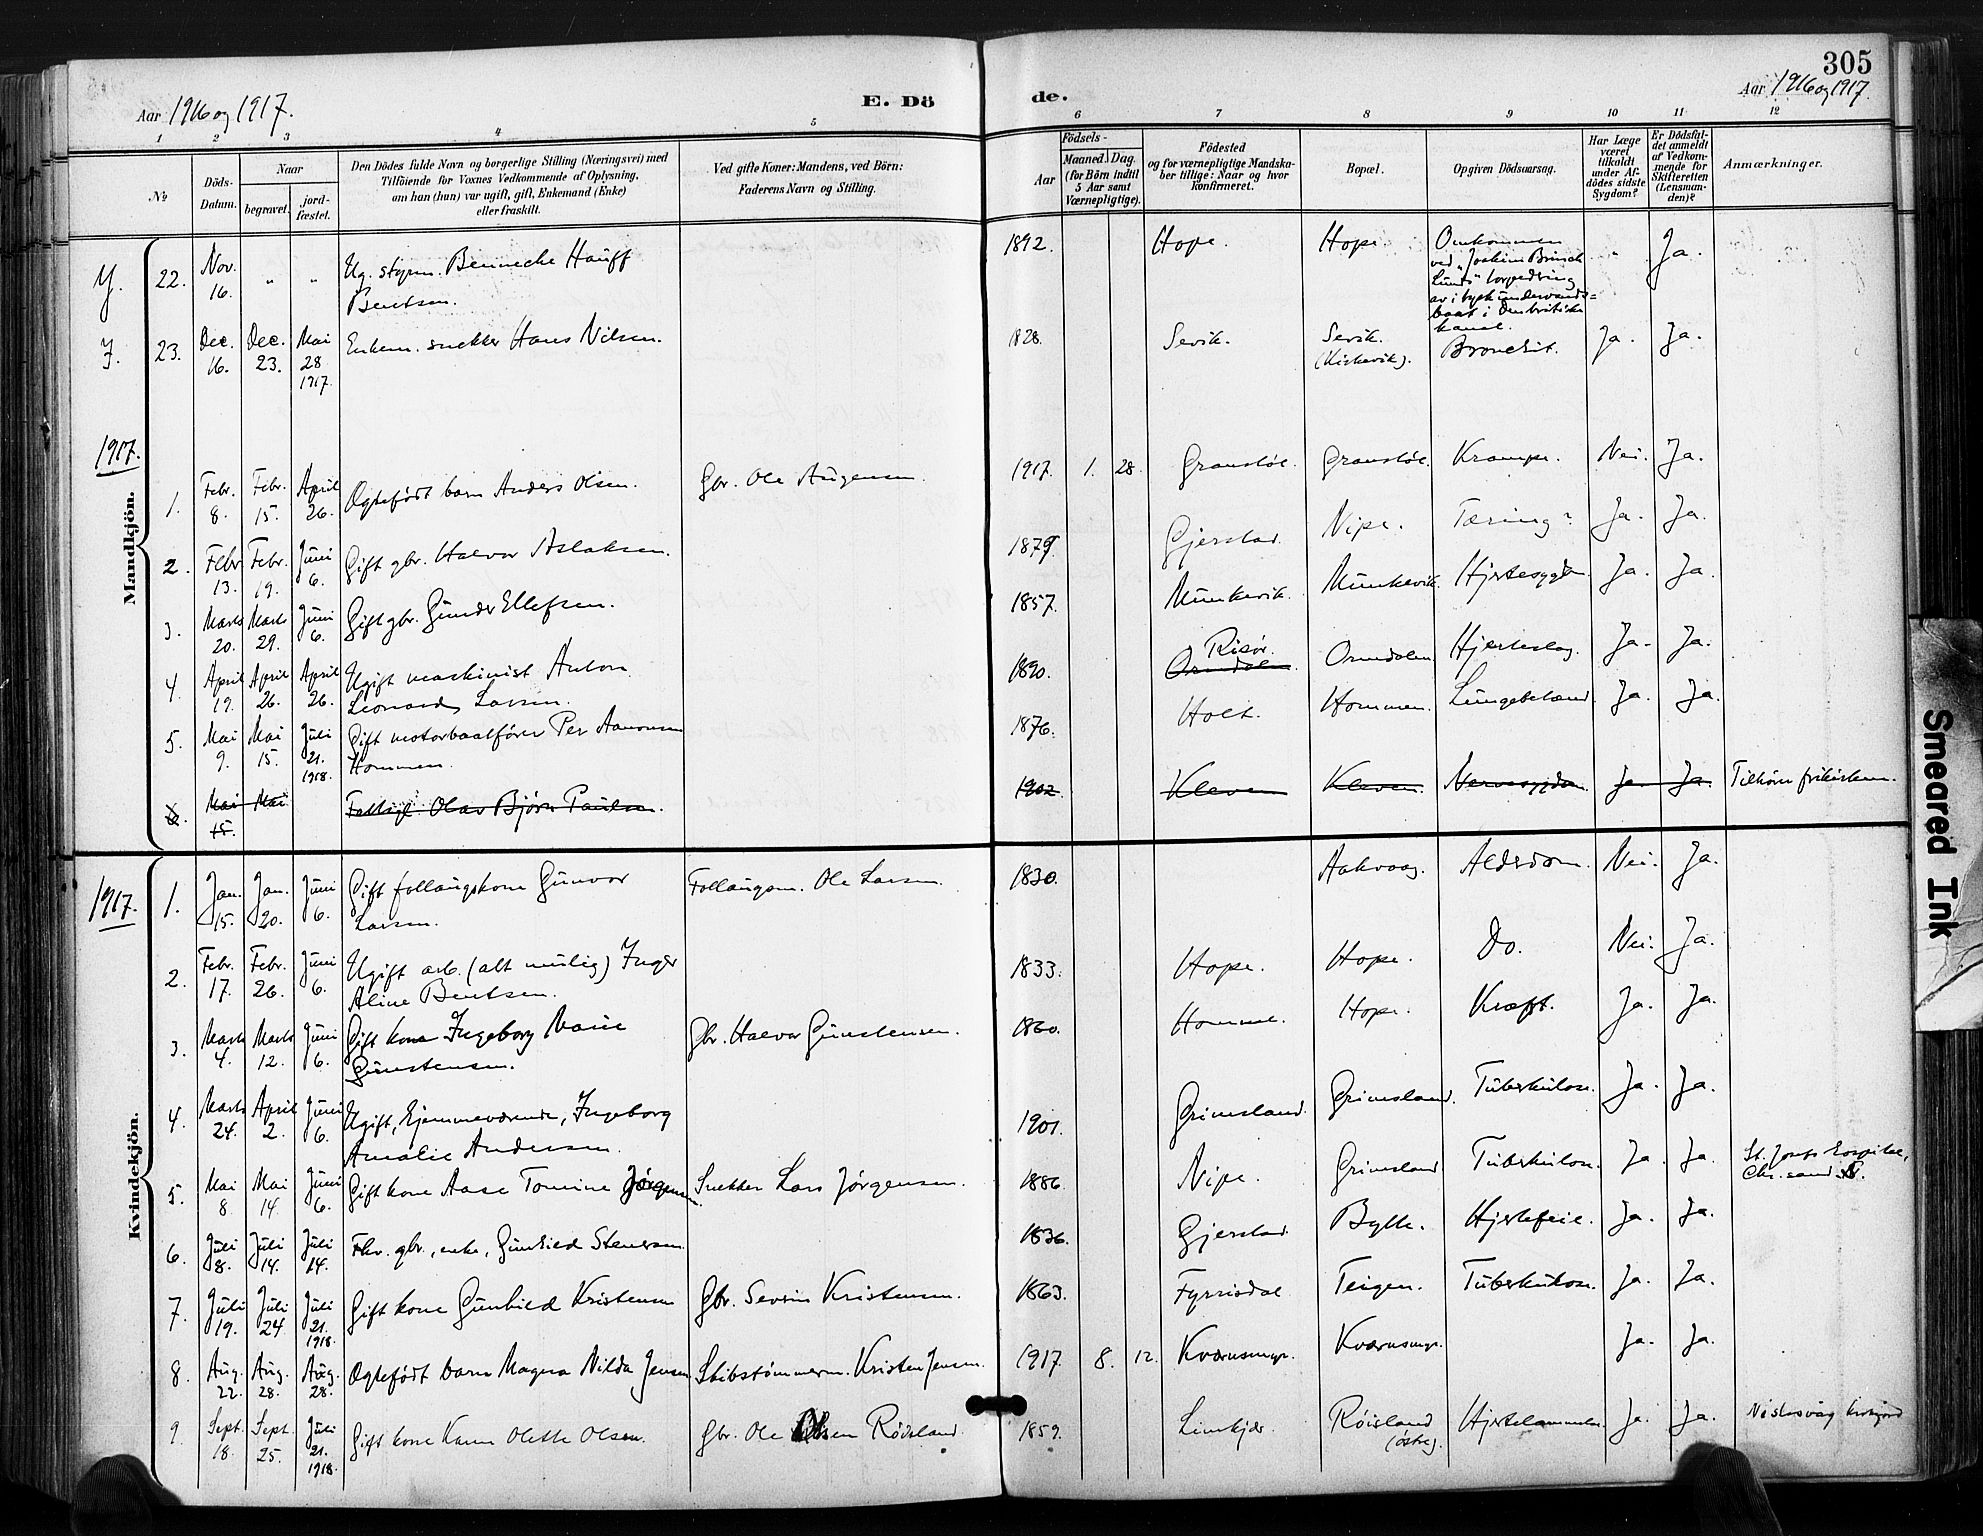 305
Aar 1916 og 1917.
E. Dö
de.
Aar 1916 og 1917.
1 2 3 4 5 6 7 8 9 10 11 12
No
Döds-Datum.
Naar
begravet.
jord-fæstet.
Den Dödes fulde Navn og borgerlige Stilling (Næringsvei) med
Tilföiende for Voxnes Vedkommende af Oplysning,
om han (hun) var ugift, gift, Enkemand (Enke)
eller fraskilt.
Ved gifte Koner: Mandens, ved Börn:
Faderens Navn og Stilling.
Födsels-
Aar
Maaned. Dag.
(for Börn indtil
5 Aar samt
Værnepligtige).
Födested
og for værnepligtige Mandska-
ber tillige: Naar og hvor
konfirmeret.
Bopæl.
Opgiven Dödsaarsag.
Har Læge
været
tilkaldt
under Af-
dödes sidste
Sygdom?
Er Dödsfal-
det anmeldt
af Vedkom-
mende for
Skifteretten
(Lensman-
den)?
Anmærkninger.
Mandkjön.
22. Nov. 16. " " Ug. styrm. Bennecke Hauff 1892. Hope. Hope. Omkommen " Ja.
Bentsen. ved "Joakim Brinch
Lunds" torpedering
av i tysk undervands=
baat i den britiske
kanal.
23. Dec. 16. Dec. 23. Mai 28 1917. Enkem. snekker Hans Nilsen. 1828. Sevik. Sevik. Bronchit. Ja. Ja.
1917.
1. Febr. 8. Febr. 15. April 26. Ægtefödt barn Anders Olsen. Gbr. Ole Augensen. 1917. 1. 28. Granstöl. Granstöl. Krampe. Nei. Ja.
2. Febr. 13. Febr. 19. Juni 6. Gift gbr. Halvor Aslaksen. 1879. Gjerstad Nipe. Tæring? Ja. Ja.
3. Marts 20. Marts 29. Juni 6. Gift gbr. Gunder Ellefsen. 1857. Munkevik. Munkevik. Hjertesygdom Ja. Ja.
4. April 19. April 26. April 26. Ugift maskinist Anton 1890. Risör. Ormdalen. Ormdalen Hjerteslag. Ja. Ja.
Leonard Larsen.
5. Mai 9. Mai 15. Juli 21. 1918. Gift motorbaatförer Per Aanonsen 1876. Holt. Hommen. Lungebetænd. Ja. Ja.
Hommen.
6. Mai 15. Mai Fattigl. Olav Björn Paulsen. 1902. Kleven Kleven. Nervesygdom. Ja. Ja. Tilhörer frikirken.
Kvindekjön.
1917. 1. Jan. 15. Jan. 20. Juni 6. Gift follaugskone Gunvor Follaugsm. Ole Larsen. 1830. Aakvaag. Alderdom. Nei. Ja.
Larsen.
2. Febr. 17. Febr. 26. Juni 6. Ugift arb. (alt mulig) Inger 1833. Hope. Hope. Do. Nei. Ja.
Aline Bentsen.
3. Marts 4. Marts 12. Juni 6. Gift kone Ingeborg Marie Gbr. Halvor Gunstensen. 1860. Homme. Hope. Kræft. Ja. Ja.
Gunstensen.
4. Marts 24. April 2. Juni 6. Ugift, hjemmeværende, Ingeborg 1901. Grimsland. Grimsland. Tuberkulose. Ja. Ja.
Amalie Andersen.
5. Mai 8. Mai 14. Juni 6. Gift kone Aase Tomine Jörgensen. Snekker Lars Jörgensen. 1886. Nipe. Grimsland Tuberkulose. Ja. Ja. St. Josefs hospital,
Chr.sand S.
6. Juli 8. Juli 14. Juli 14. Fhv. gbr., enke, Gunhild Stensen. 1836. Gjerstad. Hjertefeil. Ja. Ja.
7. Juli 19. Juli 24. Juli 21. 1918. Gift kone Gunhild Kristensen Gbr. Severin Kristensen. 1863. Fyrrisdal Teigen. Tuberkulose. Ja. Ja.
8. Aug. 22. Aug. 28. Aug. 28. Ægtefödt barn Magna Nilda Jensen Skibstömmerm. Kristen Jensen. 1917. 8. 12. Kværnsmyr. Kværnsmyr. Ja. Ja.
9. Sept. 18. Sept. 25. Juli 21. 1918. Gift kone Karen Olette Olsen. Gbr. Ole Olsen Röisland. 1859. Limkjær. Röisland Hjertelammelse. Ja. Ja.
(östre).
Smeared Ink